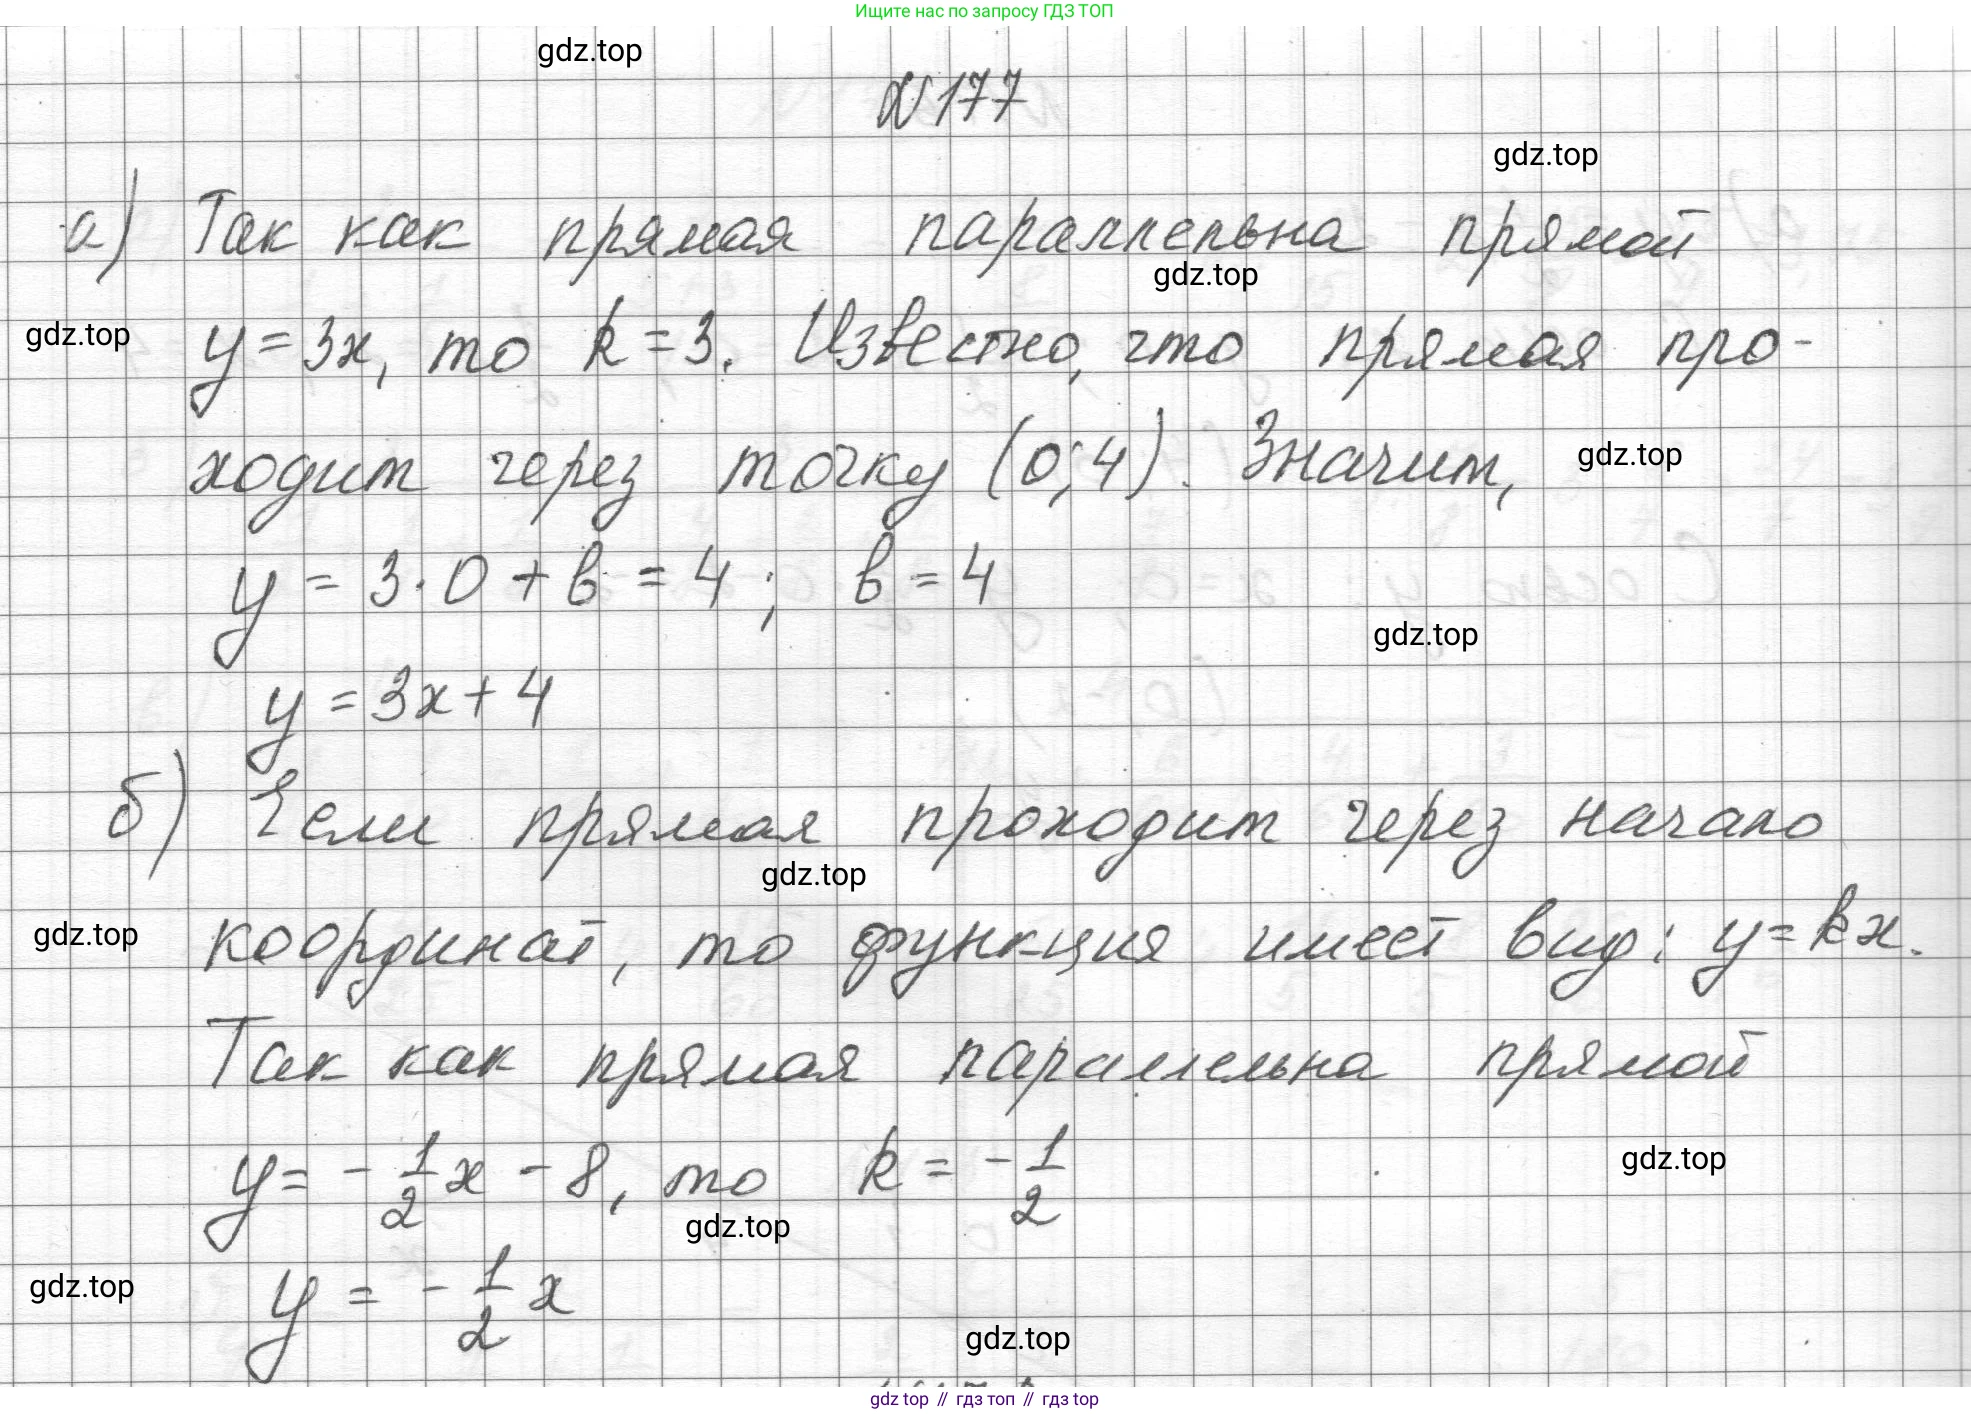 Ищите нас по запросу ГДЗ ТОП
gdz.top
№177
gdz.top
а) Так как прямая параллельна прямой
gdz.top
gdz.top
y = 3x, то k = 3. Известно, что прямая про-
ходит через точку (0; 4). Значит,
gdz.top
y = 3·0 + b = 4; b = 4
gdz.top
y = 3x + 4
б) Если прямая проходит через начало
gdz.top
gdz.top
координат, то функция имеет вид: y = kx.
Так как прямая параллельна прямой
y = -1/2 x - 8, то k = -1/2
gdz.top
gdz.top
gdz.top
y = -1/2 x
gdz.top
gdz top // гдз топ // гдз top